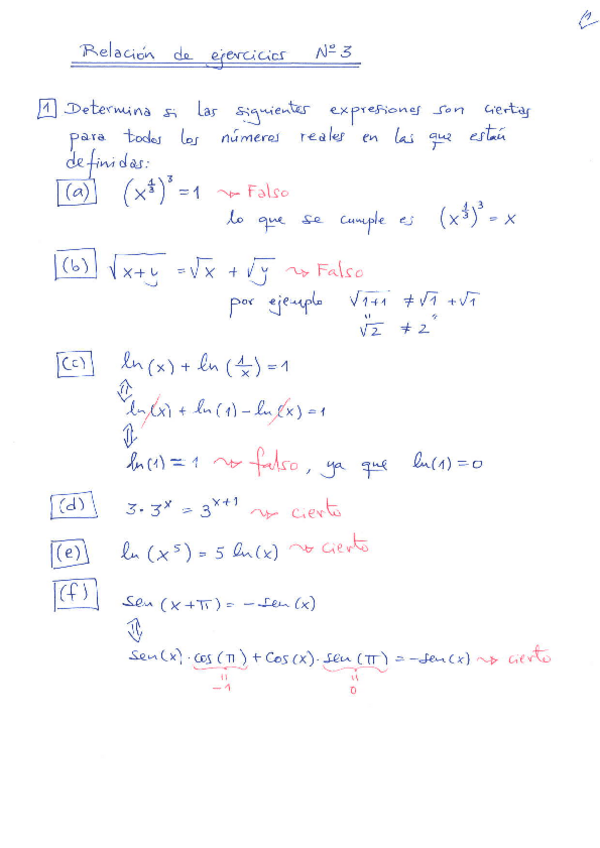 1
Relación de ejercicios Nº 3
1 Determina si las siguientes expresiones son ciertas
para todos los números reales en las que están
definidas:
(a) (x^{1/3})^3 = 1 ⇝ Falso
lo que se cumple es (x^{1/3})^3 = x
(b) √(x+y) = √x + √y ⇝ Falso
por ejemplo √(1+1) ≠ √1 + √1
" "
√2 ≠ 2
(c) ln(x) + ln(1/x) = 1
⇕
ln(x) + ln(1) - ln(x) = 1
⇕
ln(1) = 1 ⇝ falso, ya que ln(1) = 0
(d) 3·3^x = 3^{x+1} ⇝ cierto
(e) ln(x^5) = 5 ln(x) ⇝ cierto
(f) sen(x+π) = -sen(x)
⇕
sen(x)·cos(π) + cos(x)·sen(π) = -sen(x) ⇝ cierto
" "
-1 0